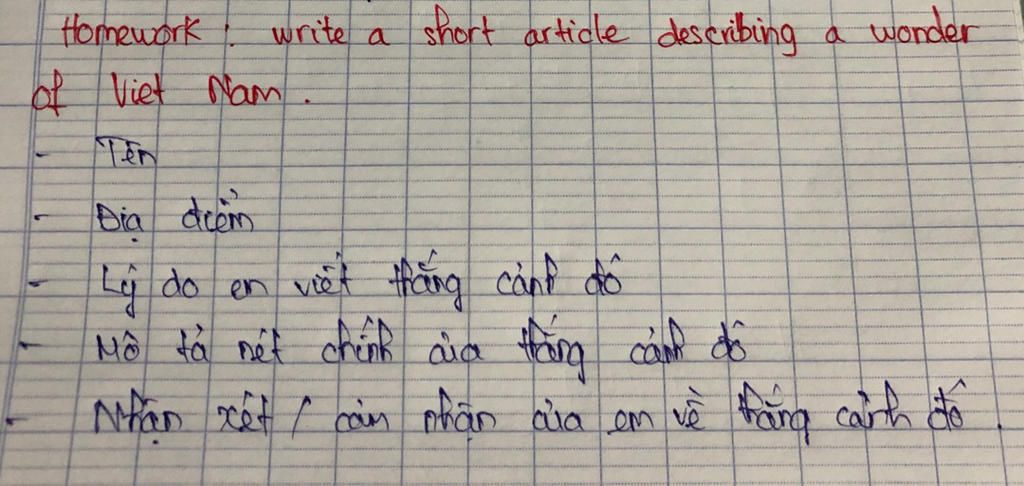 Homework : write a short article describing a wonder
of Viet Nam .
- Tên
- Địa điểm
- Lý do em viết thắng cảnh đó
- Mô tả nét chính của thắng cảnh đó
- Nhận xét / cảm nhận của em về thắng cảnh đó .